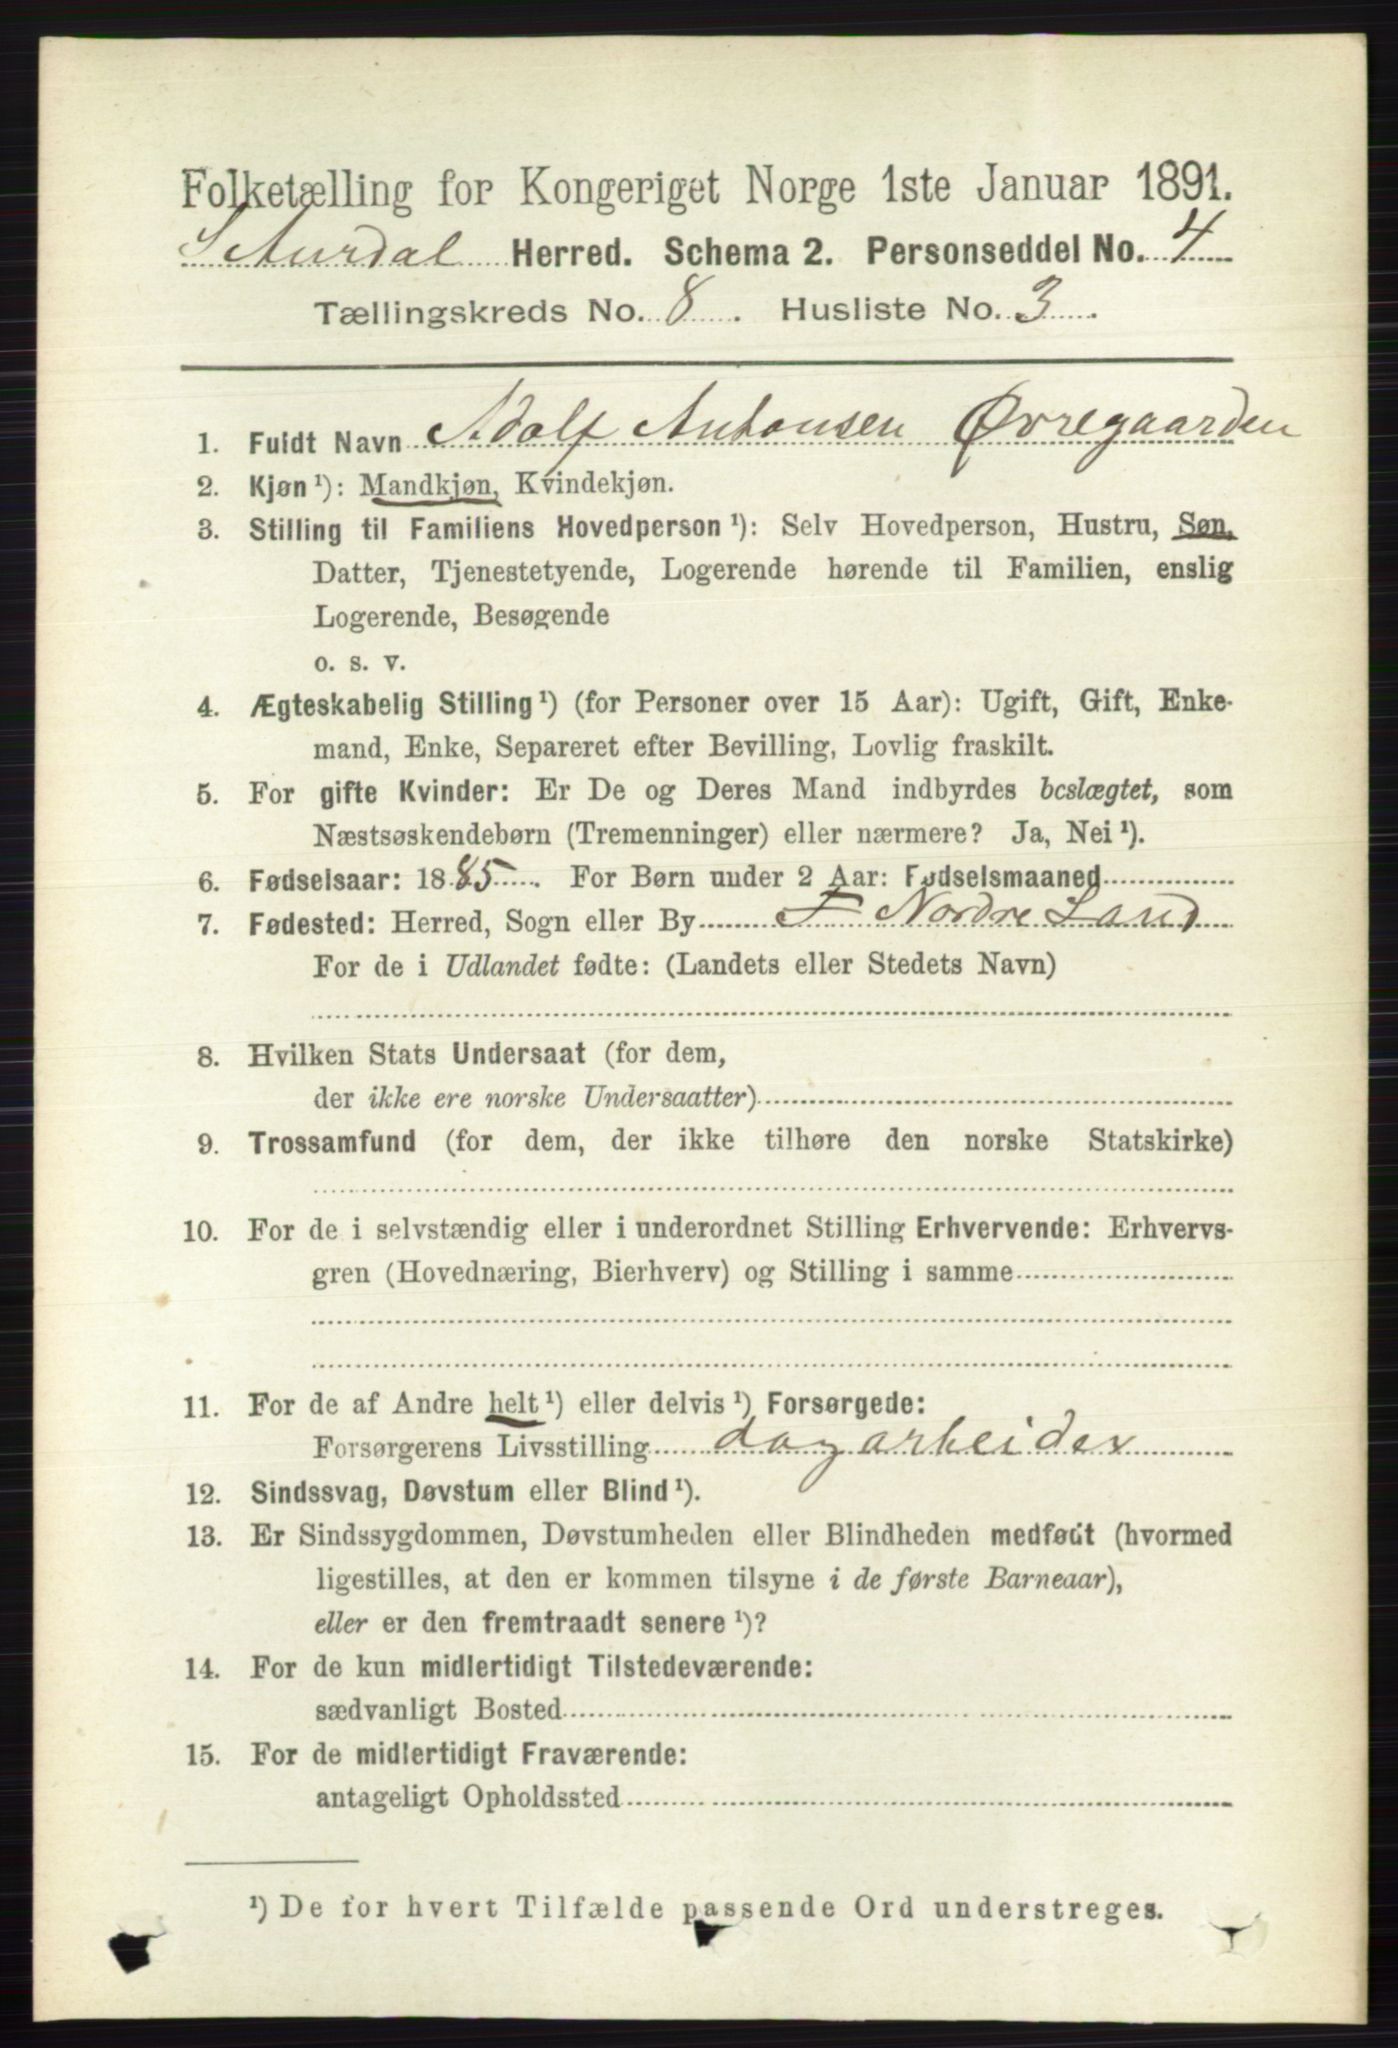 Folketælling for Kongeriget Norge 1ste Januar 1891.
S Aurdal Herred. Schema 2. Personseddel No. 4
Tællingskreds No. 8. Husliste No. 3.
1. Fuldt Navn Adolf Antonsen Øvregaarden
2. Kjøn¹): Mandkjøn, Kvindekjøn.
3. Stilling til Familiens Hovedperson¹): Selv Hovedperson, Hustru, Søn,
Datter, Tjenestetyende, Logerende hørende til Familien, enslig
Logerende, Besøgende
o. s. v.
4. Ægteskabelig Stilling¹) (for Personer over 15 Aar): Ugift, Gift, Enke-
mand, Enke, Separeret efter Bevilling, Lovlig fraskilt.
5. For gifte Kvinder: Er De og Deres Mand indbyrdes beslægtet, som
Næstsøskendebørn (Tremenninger) eller nærmere? Ja, Nei¹).
6. Fødselsaar: 1885. For Børn under 2 Aar: Fødselsmaaned
7. Fødested: Herred, Sogn eller By F Nordre Land
For de i Udlandet fødte: (Landets eller Stedets Navn)
8. Hvilken Stats Undersaat (for dem,
der ikke ere norske Undersaatter)
9. Trossamfund (for dem, der ikke tilhøre den norske Statskirke)
10. For de i selvstændig eller i underordnet Stilling Erhvervende: Erhvervs-
gren (Hovednæring, Bierhverv) og Stilling i samme
11. For de af Andre helt¹) eller delvis¹) Forsørgede:
Forsørgerens Livsstilling dagarbeider
12. Sindssvag, Døvstum eller Blind¹).
13. Er Sindssygdommen, Døvstumheden eller Blindheden medfødt (hvormed
ligestilles, at den er kommen tilsyne i de første Barneaar),
eller er den fremtraadt senere¹)?
14. For de kun midlertidigt Tilstedeværende:
sædvanligt Bosted
15. For de midlertidigt Fraværende:
antageligt Opholdssted
¹) De for hvert Tilfælde passende Ord understreges.